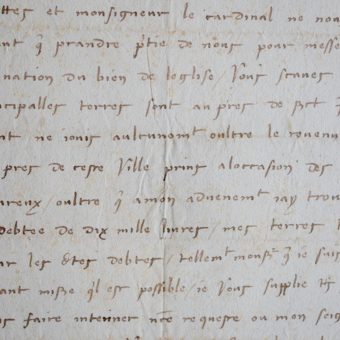 et monsigneur le cardinal ne nou
q̃ prandre ptie de nous pour messe
nation du bien de leglise / Vous scaues
cipalles terres sont au pres de
ne iouis aulcunomt oultre le revenu
pres de ceste Ville prins aloccasion des
reux / oultre q̃ amon advenemt iay trou
debtee de dix mille livres / mes terres
les dtes debtes / tellemt monsr q̃ ie suis
ant qil est possible / ie Vous supplie
faire interiner nre requeste ou mon seig